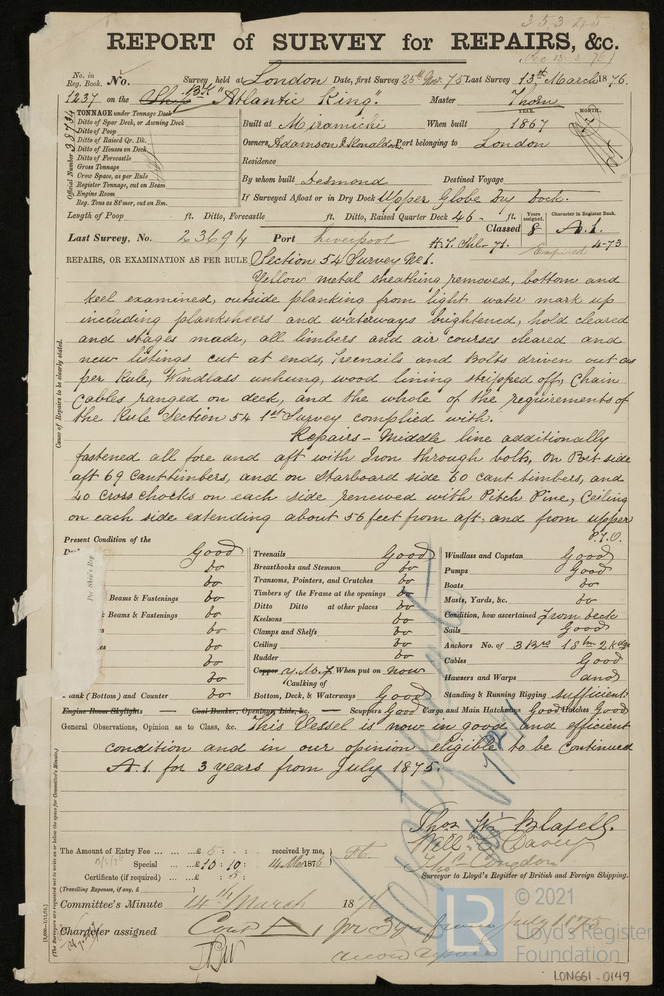 35345
REPORT of SURVEY for REPAIRS, &c.
No. in Reg. Book. No. Survey held at London Date, first Survey 25th Nov. 75 Last Survey 13th March 1876.
1237 on the Ship Bk "Atlantic King". Master Thorn
TONNAGE under Tonnage Deck
Ditto of Spar Deck, or Awning Deck
Ditto of Poop
Ditto of Raised Qr. Dk.
Ditto of Houses on Deck
Ditto of Forecastle
Gross Tonnage
Crew Space, as per Rule
Register Tonnage, cut on Beam
Engine Room
Reg. Tons as St'mer, cut on Bm.
Official Number
YEAR. MONTH.
Built at Miramichi When built 1867
Owners, Adamson & Ronaldson Port belonging to London
Residence
By whom built Desmond Destined Voyage
If Surveyed Afloat or in Dry Dock Upper Globe Dry Dock.
Length of Poop ft. Ditto, Forecastle ft. Ditto, Raised Quarter Deck 46 ft.
Years assigned. Character in Register Book.
Classed 8 A.1.
Last Survey, No. 23694 Port Liverpool 4-73
Expired
REPAIRS, OR EXAMINATION AS PER RULE Section 54 Survey No 1.
Yellow metal sheathing removed, bottom and
keel examined, outside planking from light water mark up
including planksheers and waterways brightened, hold cleared
and stages made, all limbers and air courses cleared and
new listings cut at ends, Treenails and Bolts driven out as
per Rule, Windlass unhung, wood lining stripped off, Chain
Cables ranged on deck, and the whole of the requirements of
the Rule Section 54 1st Survey complied with.
Repairs - Middle line additionally
fastened all fore and aft with Iron through bolts, on Port side
aft 69 Cant timbers, and on Starboard side 60 cant timbers, and
40 Cross chocks on each side renewed with Pitch Pine, Ceiling
on each side extending about 56 feet from aft, and from upper
P.T.O.
Cause of Repairs to be clearly stated.
Present Condition of the
Good
Do
Beams & Fastenings Do
Beams & Fastenings Do
Do
Do
Do
Do
Plank (Bottom) and Counter Do
Treenails Good
Breasthooks and Stemson Do
Transoms, Pointers, and Crutches Do
Timbers of the Frame at the openings Do
Ditto Ditto at other places Do
Keelsons Do
Clamps and Shelfs Do
Ceiling Do
Rudder Do
Copper Y.M. When put on now
Caulking of
Bottom, Deck, & Waterways Good
Windlass and Capstan Good
Pumps Good
Boats Do
Masts, Yards, &c. Do
Condition, how ascertained From deck
Sails Good
Anchors No. of 3 Brs 1 Stm 2 Kdgs
Cables Good
Hawsers and Warps and
Standing & Running Rigging sufficient
Engine Room Skylights Coal Bunker, Openings, Lids, &c. Scuppers Good Cargo and Main Hatchways Good Hatches Good
General Observations, Opinion as to Class, &c. This Vessel is now in good and efficient
condition and in our opinion eligible to be Continued
A.1. for 3 years from July 1875.
Thos W. Blasell.
Will: Davey
Thos C. Congdon
Surveyor to Lloyd's Register of British and Foreign Shipping.
The Amount of Entry Fee ... £ 5 : : received by me,
Special ... £ 10 : 10 : 14 Mar 1876
Certificate (if required) ... £ : 5 :
(Travelling Expenses, if any, £ )
Committee's Minute 14th March 1876
Character assigned Cont A 1 for 3 yrs from July 1875
© 2021
LR
Lloyd's Register
Foundation
LON661-0149